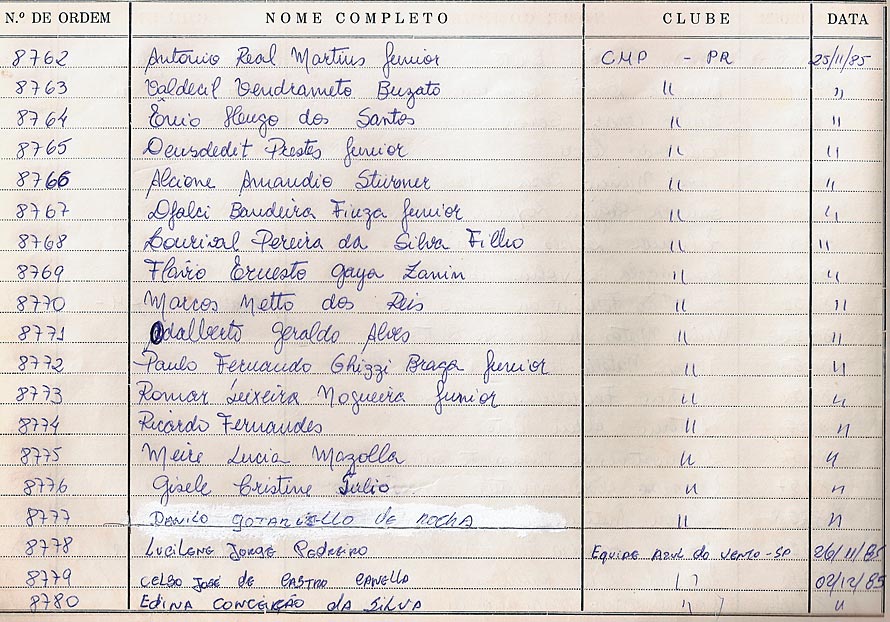 N.º DE ORDEM NOME COMPLETO CLUBE DATA
8762 Antonio Real Martins Junior CMP - PR 25/11/85
8763 Valdecil Vendrameto Buzato " "
8764 Ênio Hugo dos Santos " "
8765 Deusdedit Prestes Junior " "
8766 Alcione Amandio Sturmer " "
8767 Djalci Bandeira Fiuza Junior " "
8768 Lourival Pereira da Silva Filho " "
8769 Flavio Ernesto Gaya Zanin " "
8770 Marcos Netto dos Reis " "
8771 Odalberto Geraldo Alves " "
8772 Paulo Fernando Ghizzi Braga Junior " "
8773 Romar Teixeira Nogueira Junior " "
8774 Ricardo Fernandes " "
8775 Meire Lucia Mazolla " "
8776 Gisele Cristine Tulio " "
8777 Danilo de Rocha " "
8778 Lucilene Jorge Pedreiro Equipe Azul do Vento - SP 26/11/85
8779 Celso José de Castro Canello " 02/12/85
8780 Edina Conceição da Silva " "